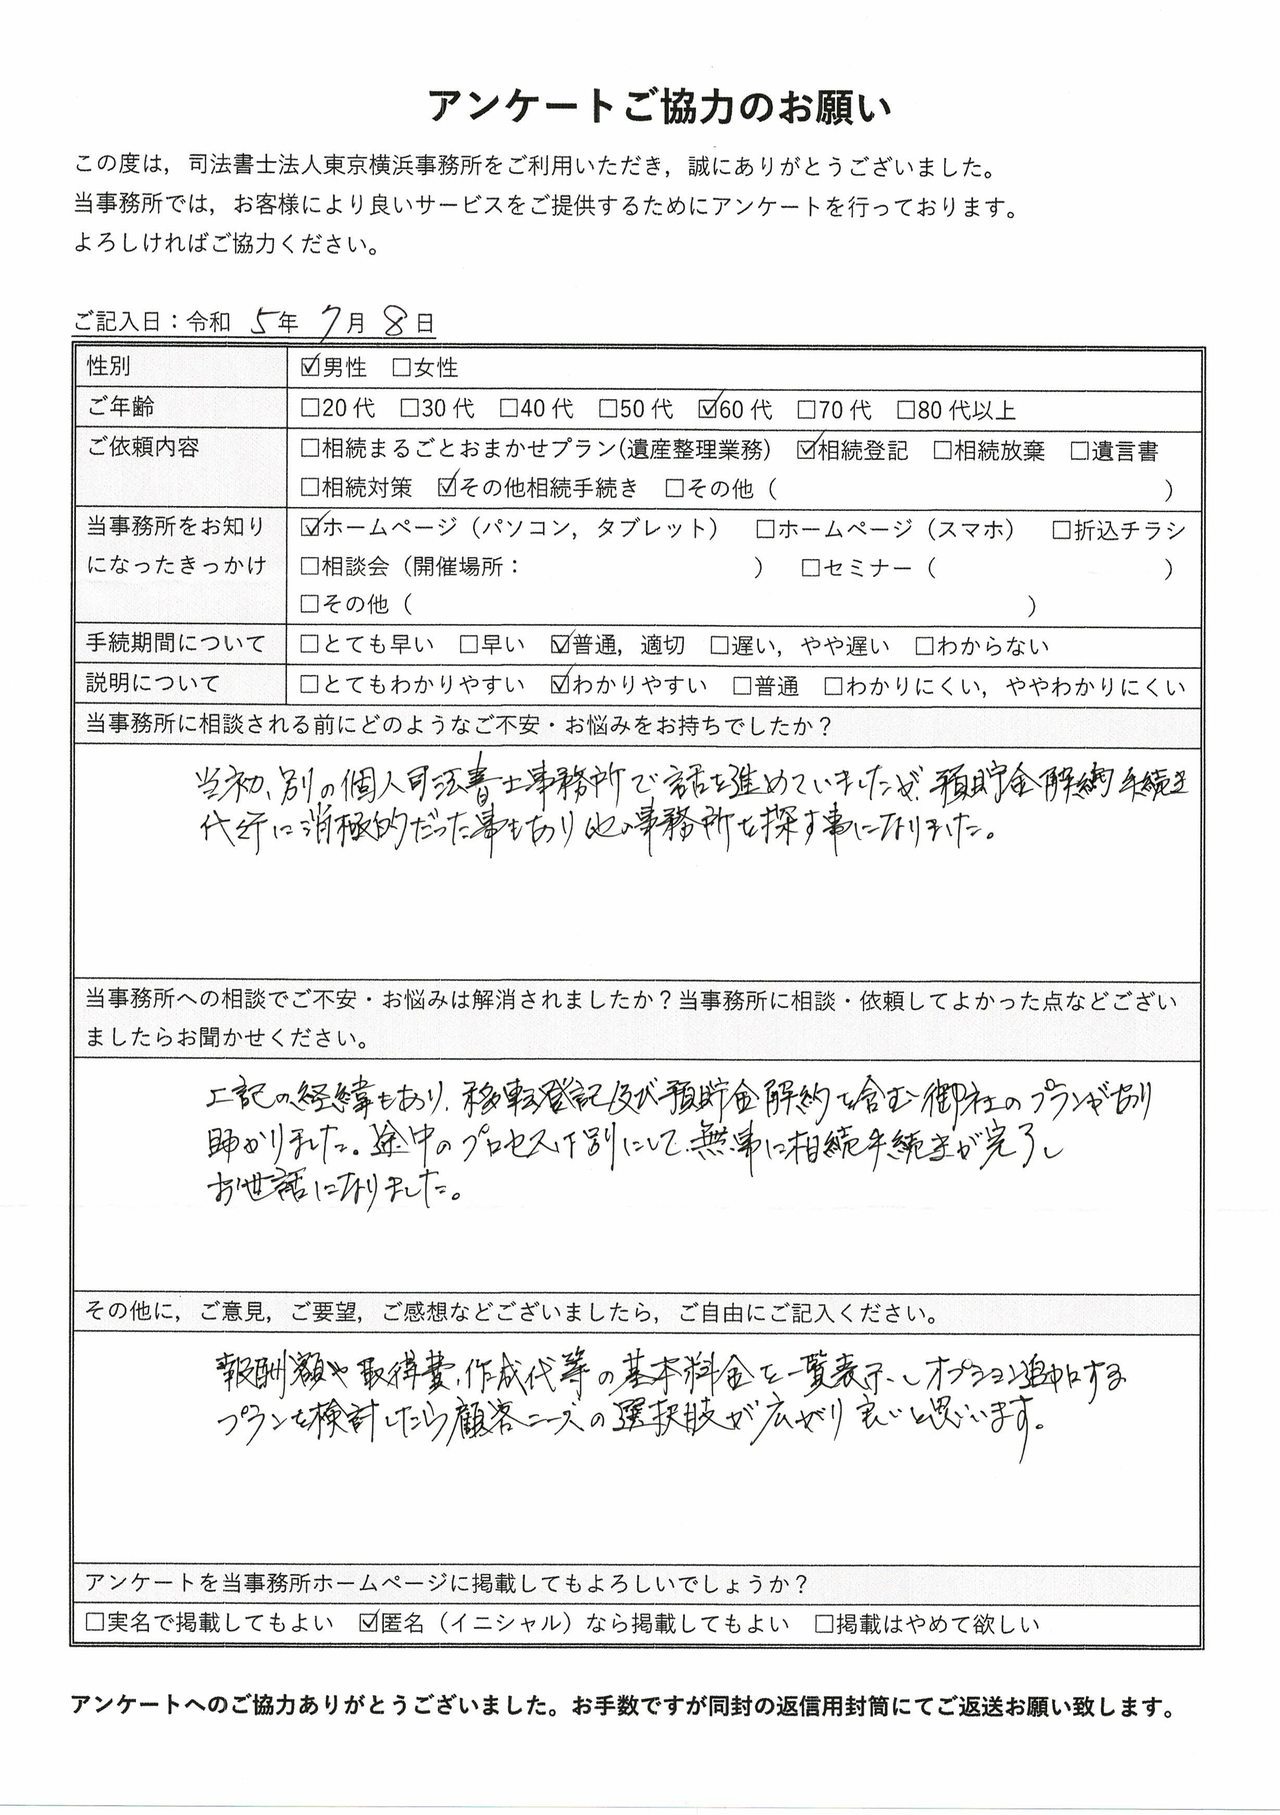 アンケートご協力のお願い
この度は，司法書士法人東京横浜事務所をご利用いただき，誠にありがとうございました。
当事務所では，お客様により良いサービスをご提供するためにアンケートを行っております。
よろしければご協力ください。
ご記入日：令和 5年 7月 8日
性別 ☑男性 □女性
ご年齢 □20代 □30代 □40代 □50代 ☑60代 □70代 □80代以上
ご依頼内容 □相続まるごとおまかせプラン(遺産整理業務) ☑相続登記 □相続放棄 □遺言書
□相続対策 ☑その他相続手続き □その他（ ）
当事務所をお知り ☑ホームページ（パソコン，タブレット） □ホームページ（スマホ） □折込チラシ
になったきっかけ □相談会（開催場所： ） □セミナー（ ）
□その他（ ）
手続期間について □とても早い □早い ☑普通，適切 □遅い，やや遅い □わからない
説明について □とてもわかりやすい ☑わかりやすい □普通 □わかりにくい，ややわかりにくい
当事務所に相談される前にどのようなご不安・お悩みをお持ちでしたか？
当初、別の個人司法書士事務所で話を進めていましたが、預貯金解約手続き
代行に消極的だった事もあり他の事務所を探す事になりました。
当事務所への相談でご不安・お悩みは解消されましたか？当事務所に相談・依頼してよかった点などござい
ましたらお聞かせください。
上記の経緯もあり、移転登記及び預貯金解約を含む御社のプランがあり
助かりました。途中のプロセスは別にして、無事に相続手続きが完了し
お世話になりました。
その他に，ご意見，ご要望，ご感想などございましたら，ご自由にご記入ください。
報酬額や取得費、作成代等の基本料金を一覧表示し、オプション追加する
プランを検討したら顧客ニーズの選択肢が広がり良いと思います。
アンケートを当事務所ホームページに掲載してもよろしいでしょうか？
□実名で掲載してもよい ☑匿名（イニシャル）なら掲載してもよい □掲載はやめて欲しい
アンケートへのご協力ありがとうございました。お手数ですが同封の返信用封筒にてご返送お願い致します。